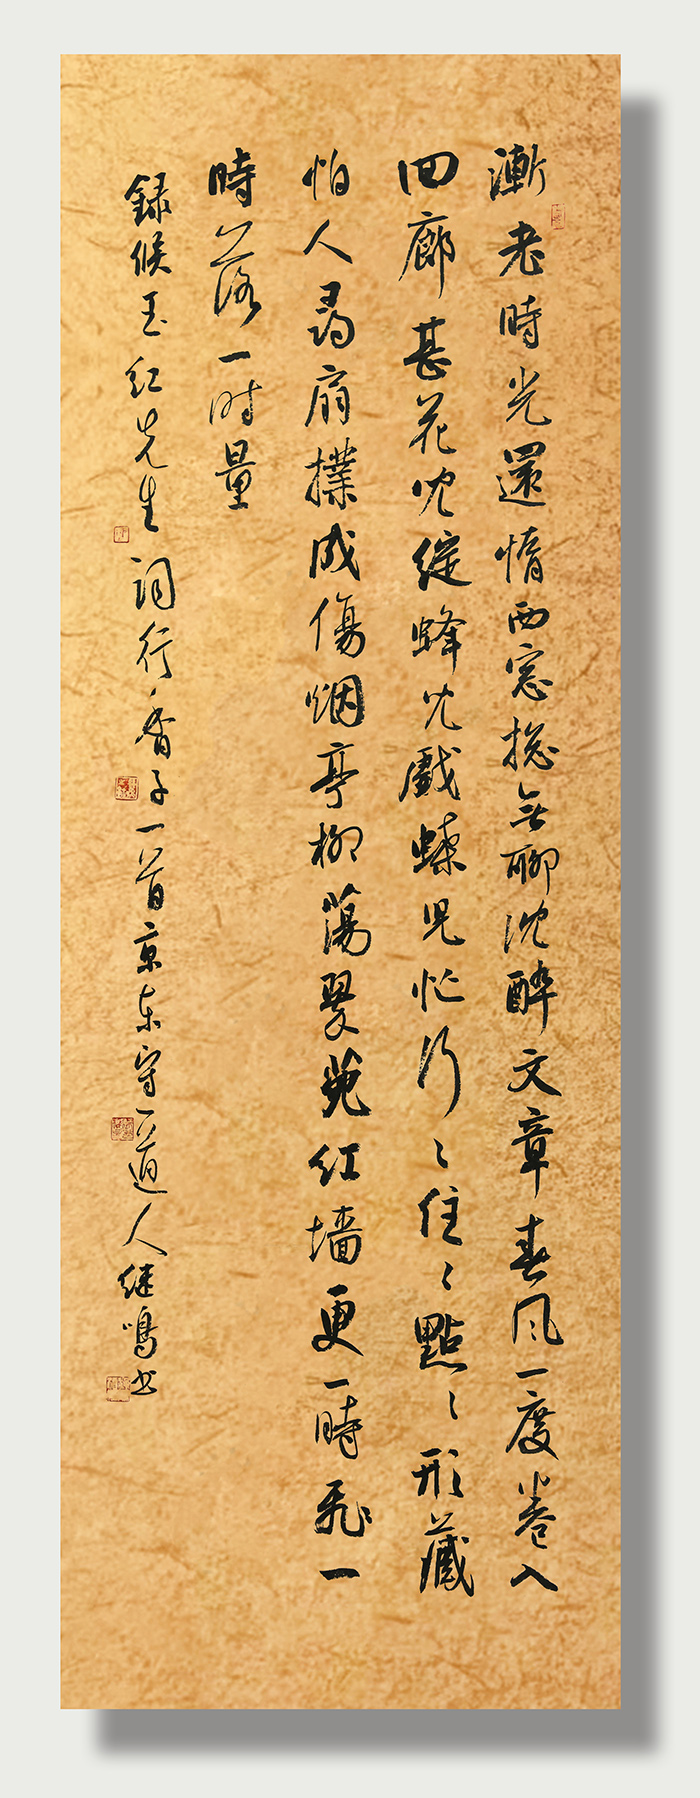 漸老時光還惰西窓揔無聊沈醉文章春風一度卷入
四廊甚花児綻蜂児戲蝶児忙行〻住〻點〻形藏
怕人尋扇撲成傷烟亭柳蕩翠苑紅墙更一時飛一
時落一时量
録候玉红先生词行香子一首京东守一道人继鳴书